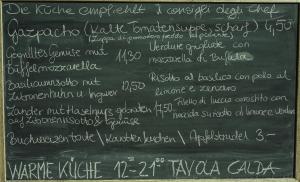 Die Küche empfiehlt I consigli degli chef
Gazpacho (kalte Tomatensuppe, scharf) 4,50
Zuppa di pomodoro fredda (piccante)
Gegrilltes Gemüse mit 11,30 Verdure grigliate con
Büffelmozzarella mozzarella di Bufala
Basilikumrisotto mit 12,50 Risotto al basilico con pollo al
Zitronenhuhn u Ingwer limone e zenzero
Zander mit Haselnuss gebraten Filetto di luccio arrostito con
auf Zitronenrisotto & Gemüse nocciola su risotto di limone e verdura
Buchweizentorte / Karottenkuchen / Apfelstrudel 3.-
WARME KÜCHE 12-21 00 TAVOLA CALDA